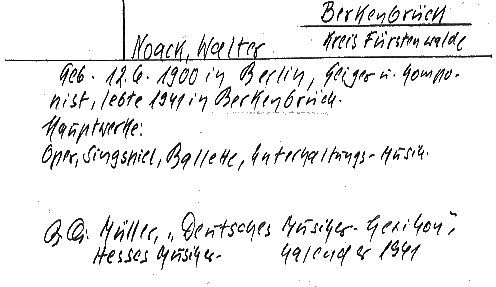 Berkenbrück
Noack, Walter
Kreis Fürstenwalde
Geb. 12.6.1900 in Berlin, Geiger u. Kompo-
nist, lebte 1941 in Berkenbrück.
Hauptwerke:
Oper, Singspiel, Ballette, Unterhaltungs-Musik.
Müller, „Deutsches Musiker-Lexikon",
Hesses Musiker-Kalender 1941